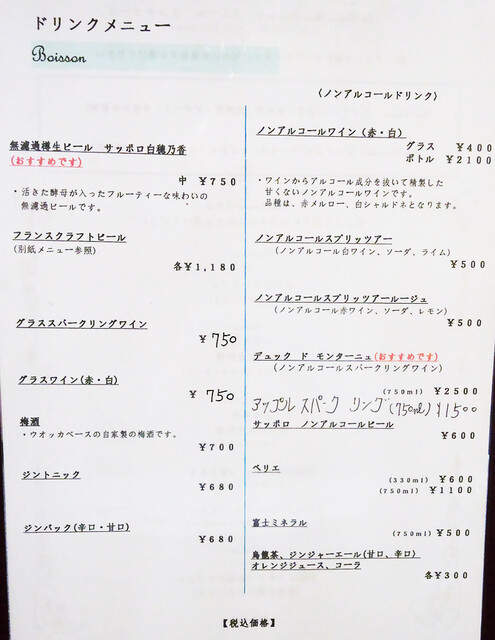 ドリンクメニュー
Boisson
無濾過樽生ビール　サッポロ白穂乃香
(おすすめです)
中　¥７５０
・活きた酵母が入ったフルーティーな味わいの
無濾過ビールです。
フランスクラフトビール
(別紙メニュー参照)
各¥1,180
グラススパークリングワイン
¥ 750
グラスワイン(赤・白)
¥ 750
梅酒
・ウオッカベースの自家製の梅酒です。
¥７００
ジントニック
¥６８０
ジンバック(辛口・甘口)
¥６８０
〈ノンアルコールドリンク〉
ノンアルコールワイン（赤・白）
グラス　¥４００
ボトル　¥２１００
・ワインからアルコール成分を抜いて精製した
甘くないノンアルコールワインです。
品種は、赤メルロー、白シャルドネとなります。
ノンアルコールスプリッツアー
(ノンアルコール白ワイン、ソーダ、ライム)
¥５００
ノンアルコールスプリッツアールージュ
(ノンアルコール赤ワイン、ソーダ、レモン)
¥５００
デュック　ド　モンターニュ(おすすめです)
(ノンアルコールスパークリングワイン)
(750ml) ¥２５００
アップルスパークリング(750ml) ¥1500
サッポロ　ノンアルコールビール
¥６００
ペリエ
(330ml) ¥６００
(750ml) ¥１１００
富士ミネラル
(750ml) ¥５００
烏龍茶、ジンジャーエール(甘口、辛口)
オレンジジュース、コーラ
各¥３００
【税込価格】